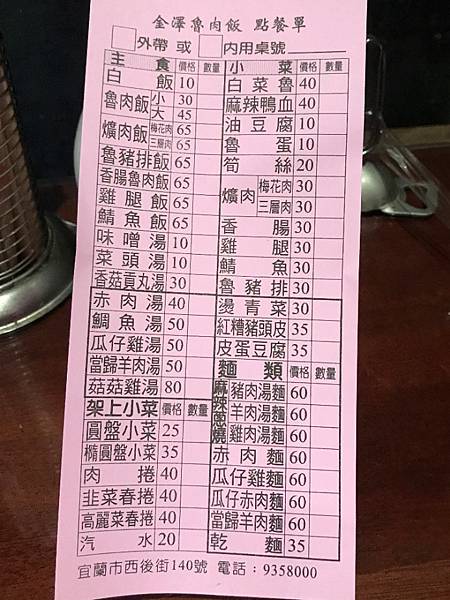 金澤魯肉飯 點餐單
外帶 或 內用桌號
主食 價格 數量
白飯 10
魯肉飯 小 30
大 45
爌肉飯 梅花肉 65
三層肉 65
魯豬排飯 65
香腸魯肉飯 65
雞腿飯 65
鯖魚飯 65
味噌湯 10
菜頭湯 10
香菇貢丸湯 30
赤肉湯 40
鯛魚湯 50
瓜仔雞湯 50
當歸羊肉湯 50
菇菇雞湯 80
架上小菜 價格 數量
圓盤小菜 25
橢圓盤小菜 35
肉捲 40
韭菜春捲 40
高麗菜春捲 40
汽水 20
小菜 價格 數量
白菜魯 40
麻辣鴨血 40
油豆腐 10
魯蛋 10
筍絲 20
爌肉 梅花肉 30
三層肉 30
香腸 30
雞腿 30
鯖魚 30
魯豬排 30
燙青菜 30
紅糟豬頭皮 35
皮蛋豆腐 35
麵類 價格 數量
麻辣蔥燒 豬肉湯麵 60
羊肉湯麵 60
雞肉湯麵 60
赤肉麵 60
瓜仔雞麵 60
瓜仔赤肉麵 60
當歸羊肉麵 60
乾麵 35
宜蘭市西後街140號 電話：9358000